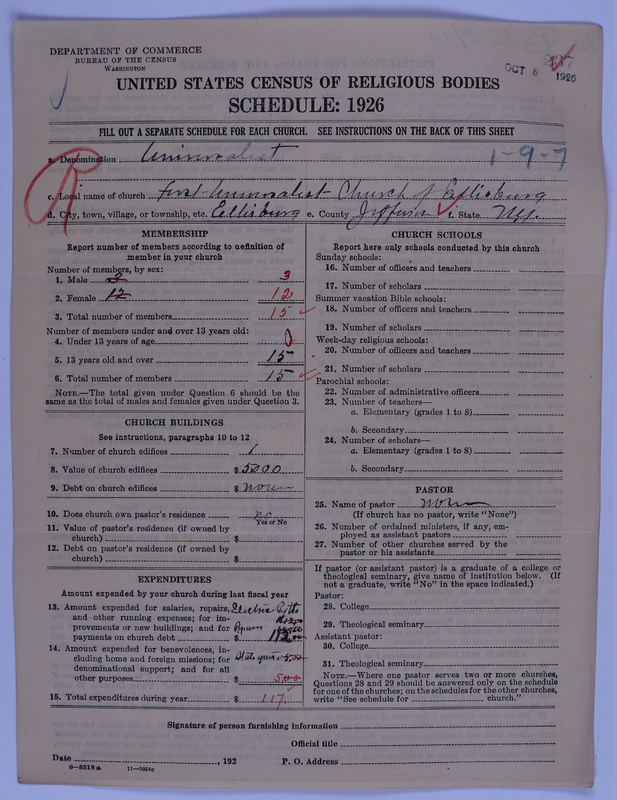 DEPARTMENT OF COMMERCE
BUREAU OF THE CENSUS
WASHINGTON
OCT 6 1926
UNITED STATES CENSUS OF RELIGIOUS BODIES
SCHEDULE: 1926
FILL OUT A SEPARATE SCHEDULE FOR EACH CHURCH. SEE INSTRUCTIONS ON THE BACK OF THIS SHEET
a. Denomination Universalist 1-9-7
c. Local name of church First Universalist Church of Ellisburg
d. City, town, village, or township, etc. Ellisburg e. County Jefferson f. State N.Y.
MEMBERSHIP
Report number of members according to definition of
member in your church
Number of members, by sex:
1. Male 3 3
2. Female 12 12
3. Total number of members 15
Number of members under and over 13 years old:
4. Under 13 years of age 0
5. 13 years old and over 15
6. Total number of members 15
NOTE.—The total given under Question 6 should be the
same as the total of males and females given under Question 3.
CHURCH BUILDINGS
See instructions, paragraphs 10 to 12
7. Number of church edifices 1
8. Value of church edifices $ 5000
9. Debt on church edifices $ none
10. Does church own pastor's residence no
Yes or No
11. Value of pastor's residence (if owned by
church) $
12. Debt on pastor's residence (if owned by
church) $
EXPENDITURES
Amount expended by your church during last fiscal year
13. Amount expended for salaries, repairs, Electric Lights
and other running expenses; for im-
provements or new buildings; and for
payments on church debt $ 112.00
14. Amount expended for benevolences, in-
cluding home and foreign missions; for State quota 5.00
denominational support; and for all
other purposes $ 5.00
15. Total expenditures during year $ 117.
CHURCH SCHOOLS
Report here only schools conducted by this church
Sunday schools:
16. Number of officers and teachers
17. Number of scholars
Summer vacation Bible schools:
18. Number of officers and teachers
19. Number of scholars
Week-day religious schools:
20. Number of officers and teachers
21. Number of scholars
Parochial schools:
22. Number of administrative officers
23. Number of teachers—
a. Elementary (grades 1 to 8)
b. Secondary
24. Number of scholars—
a. Elementary (grades 1 to 8)
b. Secondary
PASTOR
25. Name of pastor none
(If church has no pastor, write "None")
26. Number of ordained ministers, if any, em-
ployed as assistant pastors
27. Number of other churches served by the
pastor or his assistants
If pastor (or assistant pastor) is a graduate of a college or
theological seminary, give name of institution below. (If
not a graduate, write "No" in the space indicated.)
Pastor:
28. College
29. Theological seminary
Assistant pastor:
30. College
31. Theological seminary
NOTE.—Where one pastor serves two or more churches,
Questions 28 and 29 should be answered only on the schedule
for one of the churches; on the schedules for the other churches,
write "See schedule for church."
Signature of person furnishing information
Official title
Date , 192 P. O. Address
8—5518a 11—9034